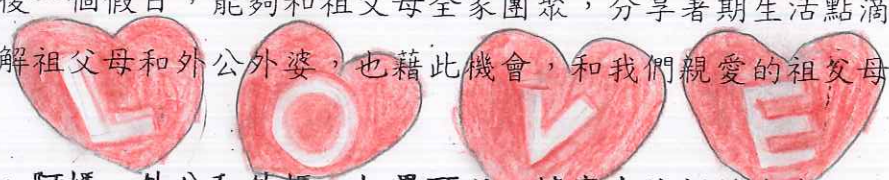 後一個假日，能夠和祖父母全家團聚，分享暑期生活點滴
解祖父母和外公外婆，也藉此機會，和我們親愛的祖父母
L O V E